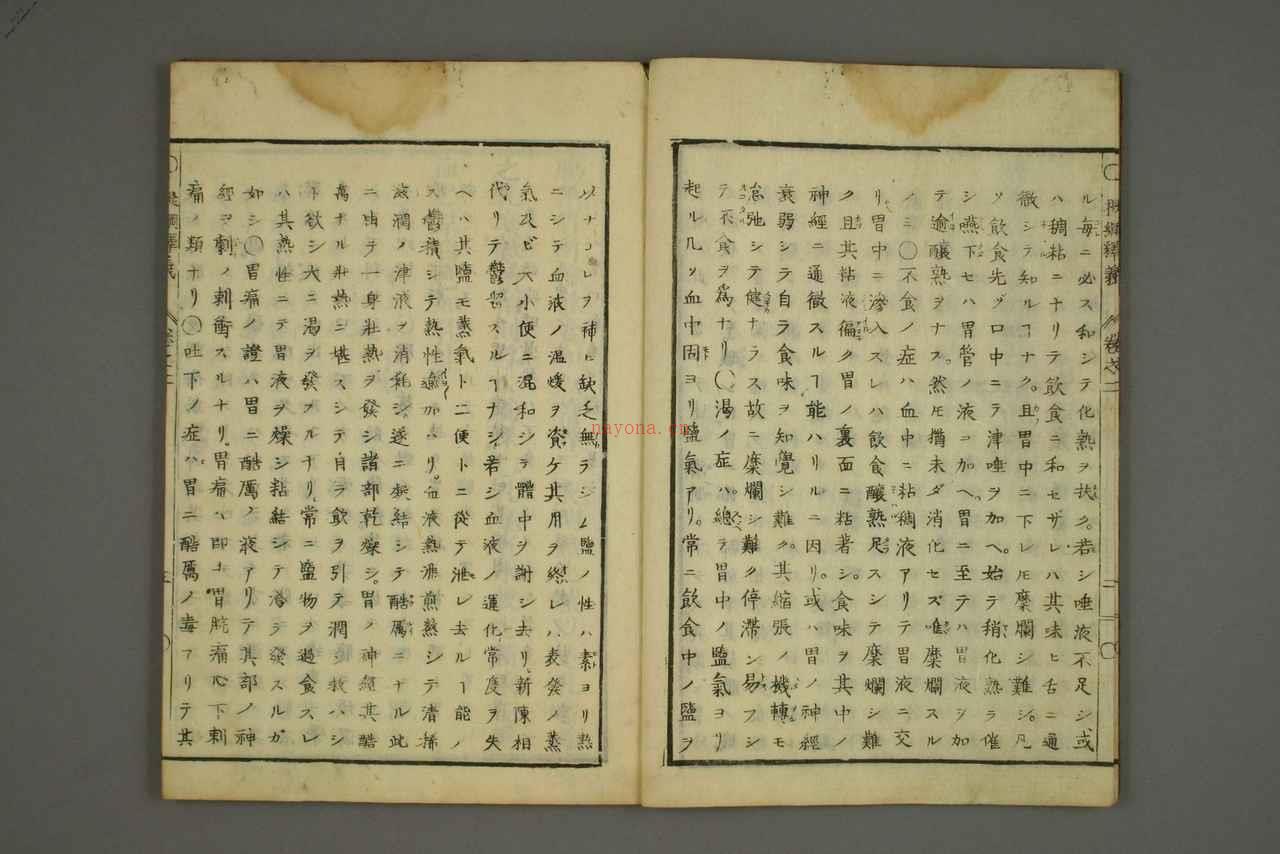 ル毎ニ必ス和シテ化熟ヲ扶ク。若シ唾液不足シ或
ハ稠粘ニナリテ飲食ニ和セザレハ其味ヒ舌ニ通
徹シテ知ルヿナク。且胃中ニ下レ𪜈糜爛シ難シ。凡
ソ飲食先ヅ口中ニテ津唾ヲ加ヘ。始テ稍化熟ラ催
シ燕下セハ胃管ノ液コ加ヘ胃ニ至テハ胃液ヲ加
テ逾釀熟ヲナス。然𪜈猶未ダ消化セズ唯糜爛スル
ノミ〇不食ノ症ハ血中ニ粘稠液アリテ胃液ニ交
リ胃中ニ滲入スレハ飲食釀熟足スシテ糜爛シ難
ク且其粘液偏ク胃ノ裏面ニ粘著シ。食味ヲ其中ノ
神經ニ通徹スルヿ能ハサルニ因リ。或ハ胃ノ神經
衰弱シテ自ラ食味ヲ知覺シ難ク。其縮張ノ機轉モ
怠弛シテ健ナラス故ニ糜爛シ難ク停滯シ易フシ
テ不食ヲ爲ナリ〇渇ノ症ハ。總テ胃中ノ鹽氣ヨリ
起ル凡ソ血中固ヨリ鹽氣アリ。常ニ飲食中ノ鹽ヲ
以テコレヲ補ヒ缺乏無ラシム鹽ノ性ハ素ヨリ熱
ニシテ血液ノ温煖ヲ資ケ其用ヲ終レハ表發ノ蒸
氣及ビ大小便ニ混和シテ體中ヲ謝シ去リ新陳相
代リテ鬱畱スルヿナシ。若シ血液ノ運化常度ヲ失
ヘハ其鹽モ蒸氣ト二便トニ從テ泄レ去ルヿ能ハ
ス鬱積シテ熱性逾加ハリ。血液熱沸煎熬シテ清稀
滋潤ノ津液ヲ消耗シ。遂ニ凝結シテ酷厲ニナル此
ニ由テ一身壯熱ヲ發シ諸部乾燥シ。胃ノ神經其酷
厲ナル壯熱ニ堪スシテ自ラ飲ヲ引テ潤シ救ハン
ト欲シ大ニ渇ヲ發ァルナリ。常ニ鹽物ヲ過食スレ
ハ其熱性ニテ胃液ヲ燥シ粘結シテ渇ヲ發スルガ
如シ〇胃痛ノ證ハ胃ニ酷厲ノ液アリテ其部ノ神
經ヲ劇ク刺衝スルナリ。胃痛ハ即チ胃脘痛心下刺
痛ノ類ナリ〇吐下ノ症ハ。胃ニ酷厲ノ毒アリテ其